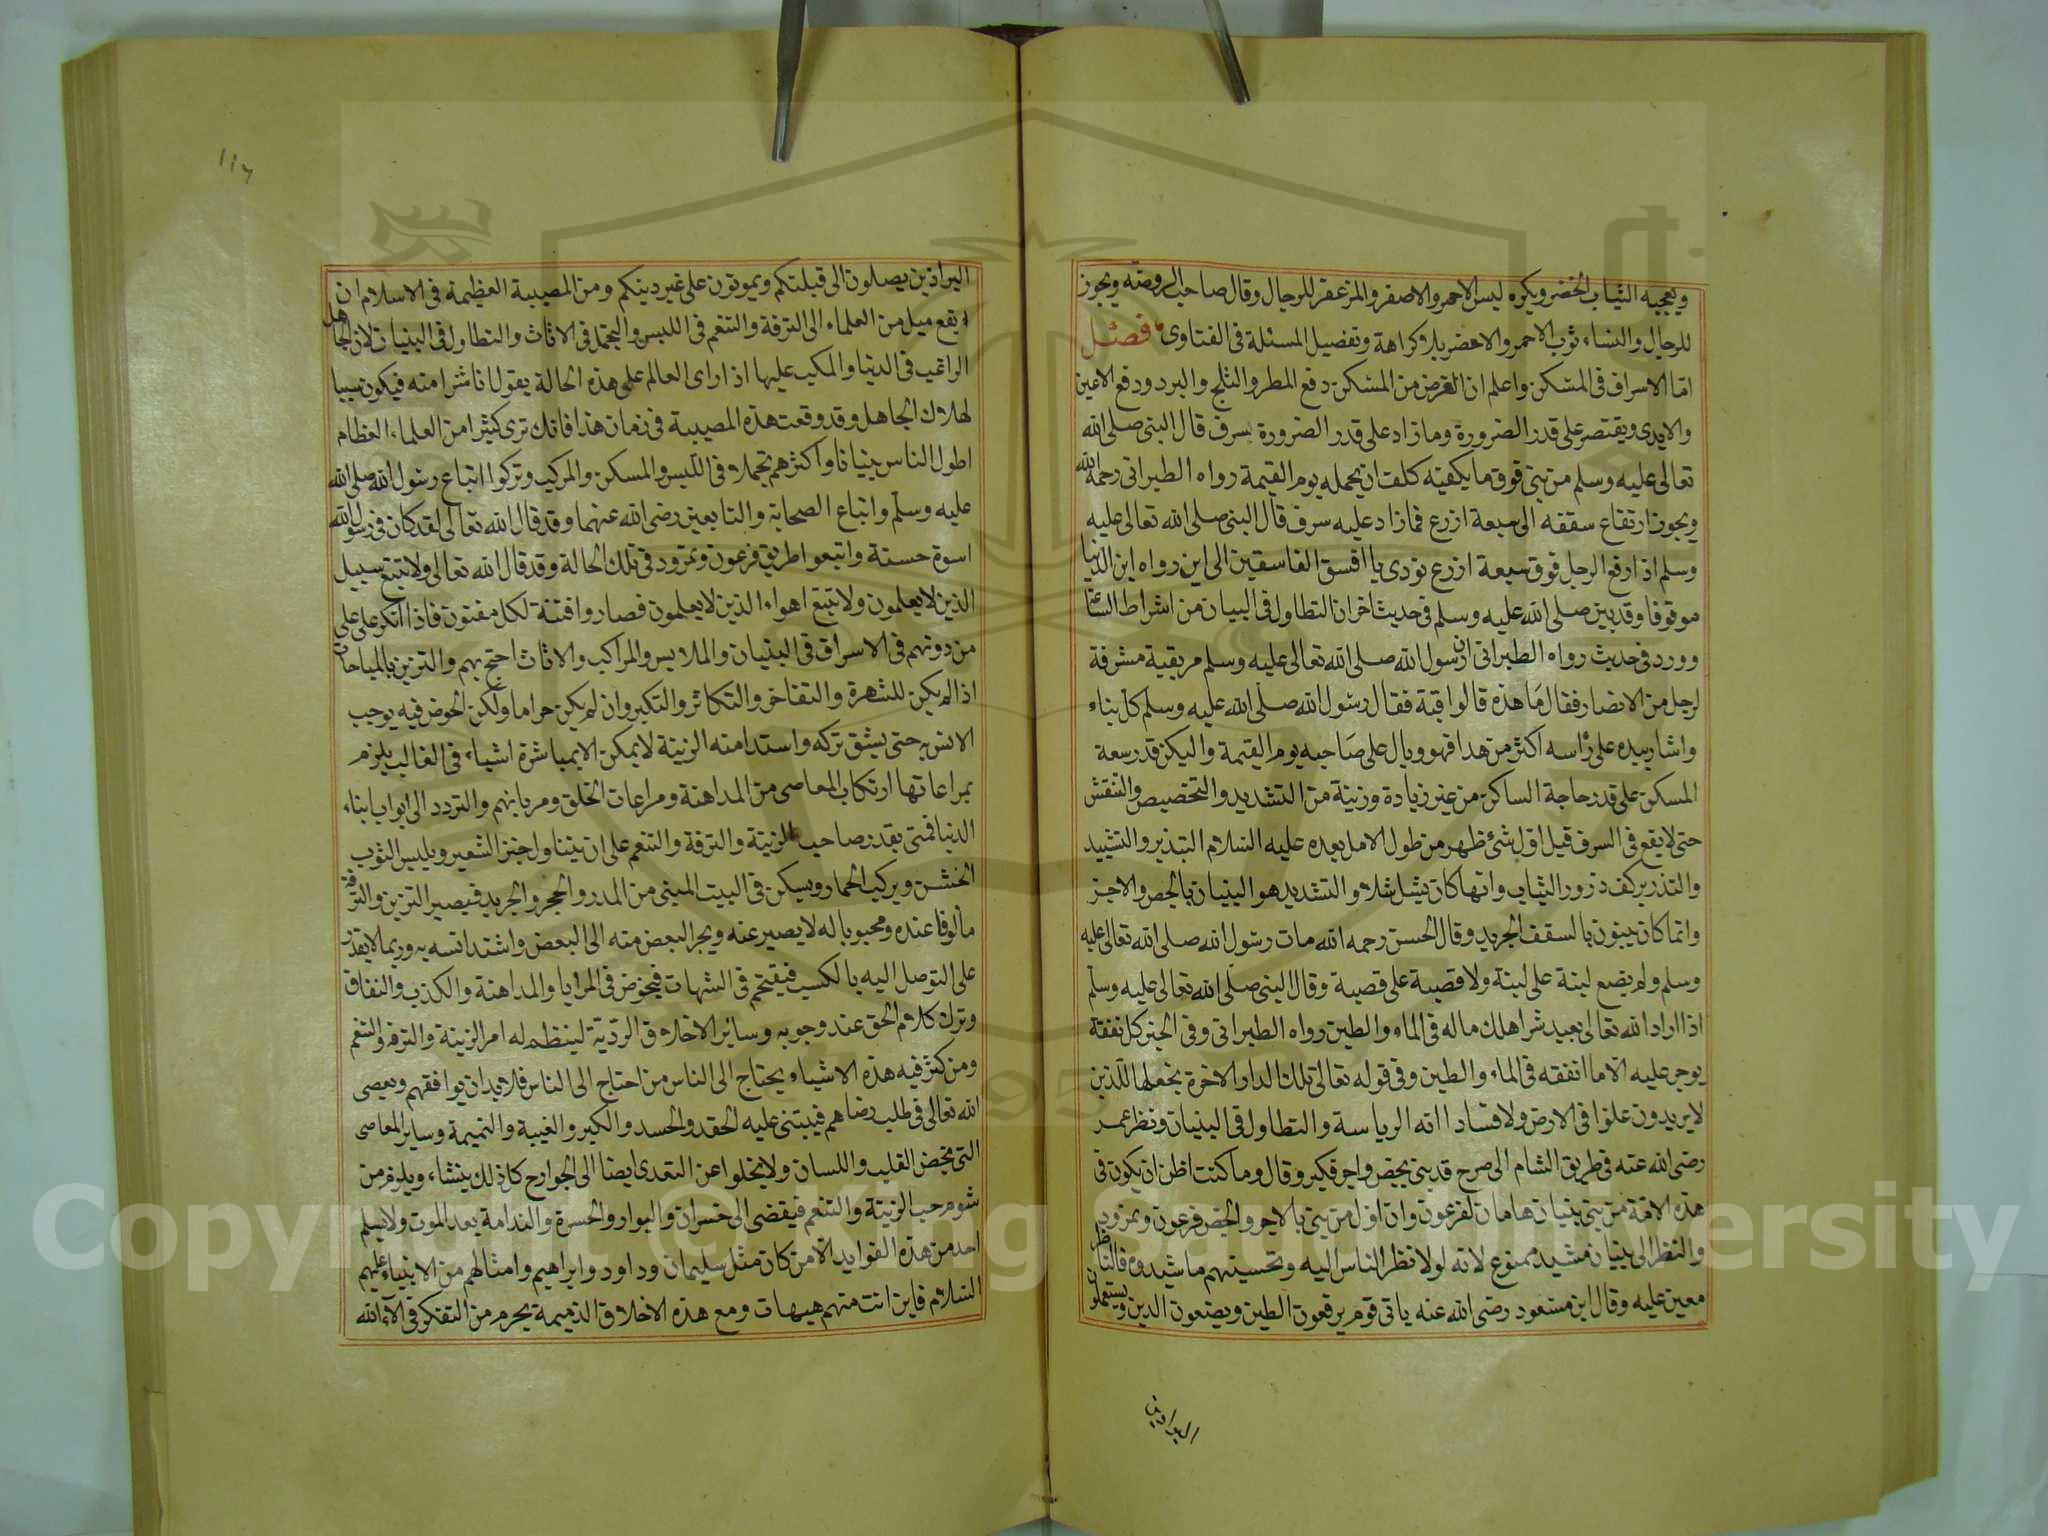 ويعجبه الثياب الخضر ويكره لبس الاحمر والاصفر والمزعفر للرجال وقال صاحب الروضة ويجوز
للرجال والنساء ثوب الاحمر والاخضر بلا كراهة وتفصيل المسئلة فى الفتاوى فصل
اما الاسراف فى المسكن واعلم ان الغرض من المسكن دفع المطر والثلج والبرد ودفع الاعين
والايدى ويقتصر على قدر الضرورة وما زاد على قدر الضرورة سرف قال النبى صلى الله
تعالى عليه وسلم من بنى فوق ما يكفيه كلف ان يحمله يوم القيمة رواه الطبرانى رحمه الله
ويجوز ارتفاع سقفه الى سبعة اذرع فما زاد عليه سرف قال النبى صلى الله تعالى عليه
وسلم اذا رفع الرجل فوق سبعة اذرع نودى يا افسق الفاسقين الى اين رواه ابن الدنيا
موقوفا وقد بين صلى الله عليه وسلم فى حديث اخر ان التطاول فى البنيان من اشراط الساعة
وورد فى حديث رواه الطبرانى ان رسول الله صلى الله تعالى عليه وسلم مر بقبة مشرفة
لرجل من الانصار فقال ما هذه قالوا قبة فقال رسول الله صلى الله عليه وسلم كل بناء
واشار بيده على رأسه اكثر من هذا فهو وبال على صاحبه يوم القيمة وليكن قدر سعة
المسكن على قدر حاجة الساكن من غير زيادة وزينة من التشديد والتخصيص والنقش
حتى لا يقع فى السرف قيل اول شئ ظهر من طول الامل بعده عليه السلام التبذير والتشييد
والتذرير كف دزور الثياب وانها كان يشل شلا والتشديد هو البنيان بالجص والاجر
وانما كان يبنون بالسقف الجريد وقال الحسن رحمه الله مات رسول الله صلى الله تعالى عليه
وسلم ولم يضع لبنة على لبنة ولا قصبة على قصبة وقال النبى صلى الله تعالى عليه وسلم
اذا اراد الله تعالى بعبد شرا هلك ماله فى الماء والطين رواه الطبرانى وفى الخبر كل نفقة
يوجر عليه الا ما انفقه فى الماء والطين وفى قوله تعالى تلك الدار الاخرة نجعلها للذين
لا يريدون علوا فى الارض ولا فسادا انه الرياسة والتطاول فى البنيان ونظر عمر
رضى الله عنه فى طريق الشام الى صرح قد بنى بجص واجر فكبر وقال وما كنت اظن ان يكون فى
هذه الامة من يبنى بنيان هامان لفرعون وان اول من بنى بالاجر والجص فرعون ونمرود
والنظر الى بنيان مشيد ممنوع لانه لولا نظر الناس اليه وتحسينهم ما شيدوه فالناظر
معين عليه وقال ابن مسعود رضى الله عنه ياتى قوم يرفعون الطين ويضعون الدين ويستعملون
البراذين
١١٦
البراذين يصلون الى قبلتكم ويموتون على غير دينكم ومن المصيبة العظيمة فى الاسلام ان
يقع ميل من العلماء الى الترفة والتنعم فى اللبس والتجمل فى الاثاث والتطاول فى البنيان لان الجاهل
الراغب فى الدنيا والمكب عليها اذا راى العالم على هذه الحالة يقول انا شر امنه فيكون سببا
لهلاك الجاهل وقد وقعت هذه المصيبة فى زمان هذا فانك ترى كثيرا من العلماء العظام
اطول الناس بنيانا واكثرهم تجملا فى اللبس والمسكن والمركب وتركوا اتباع رسول الله صلى الله
عليه وسلم واتباع الصحابة والتابعين رضى الله عنهما وقد قال الله تعالى لقد كان فى رسول الله
اسوة حسنة واتبعوا طريق فرعون ونمرود فى تلك الحالة وقد قال الله تعالى ولا تتبع سبيل
الذين لا يعلمون ولا تتبع اهواء الذين لا يعلمون فصاروا فتنة لكل مفتون فاذا انكر على على
من دونهم فى الاسراف فى البنيان والملابس والمراكب والاثاث احتج بهم والتزين بالمباحات
اذا لم يكن للشهرة والتفاخر والتكاثر والتكبر وان لم يكن حراما ولكن الخوض فيه يوجب
الانس به حتى يشق تركه واستدامته الزينة لا يمكن الا بمباشرة اشياء فى الغالب يلزم
بمراعاتها ارتكاب المعاصى من المداهنة ومراعات الخلق ومرياتهم والتردد الى ابواب ابناء
الدنيا فمتى يقدر صاحب الزينة والترفة والتنعم على ان يتناول خبز الشعير ويلبس الثوب
الخشن ويركب الحمار ويسكن فى البيت المبنى من المدر والحجر والجريد فيصير التزين والترفة
مألوفا عنده ومحبوبا له لا يصبر عنه ويجر البعض منه الى البعض واشتد انسه به وربما لا يقدر
على التوصل اليه بالكسب فيقتحم فى الشبهات فيخوض فى المرايا والمداهنة والكذب والنفاق
وترك كلام الحق عند وجوبه وسائر الاخلاق الردية لينظم له امر الزينة والترفه والتنعم
ومن كثر فيه هذه الاشياء يحتاج الى الناس من احتاج الى الناس فلا بد ان يوافقهم ويعصى
الله تعالى فى طلب رضاهم فيبتنى عليه الحقد والحسد والكبر والغيبة والنميمة وساير المعاصى
التى يخص القلب واللسان ولا يخلوا عن التعدى ايضا الى الجوارح كل ذلك ينشاء ويلزم من
شوم حب الزينة والتنعم فيفضى الى خسران والبوار والحسرة والندامة بعد الموت ولا يسلم
احد من هذه الفوايد الا من كان مثل سليمان وداود وابراهيم وامثالهم من الانبياء عليهم
السلام فاين انت منهم هيهات ومع هذه الاخلاق الذميمة يحرم من التفكر فى الآء الله
Copyright © King Saud University